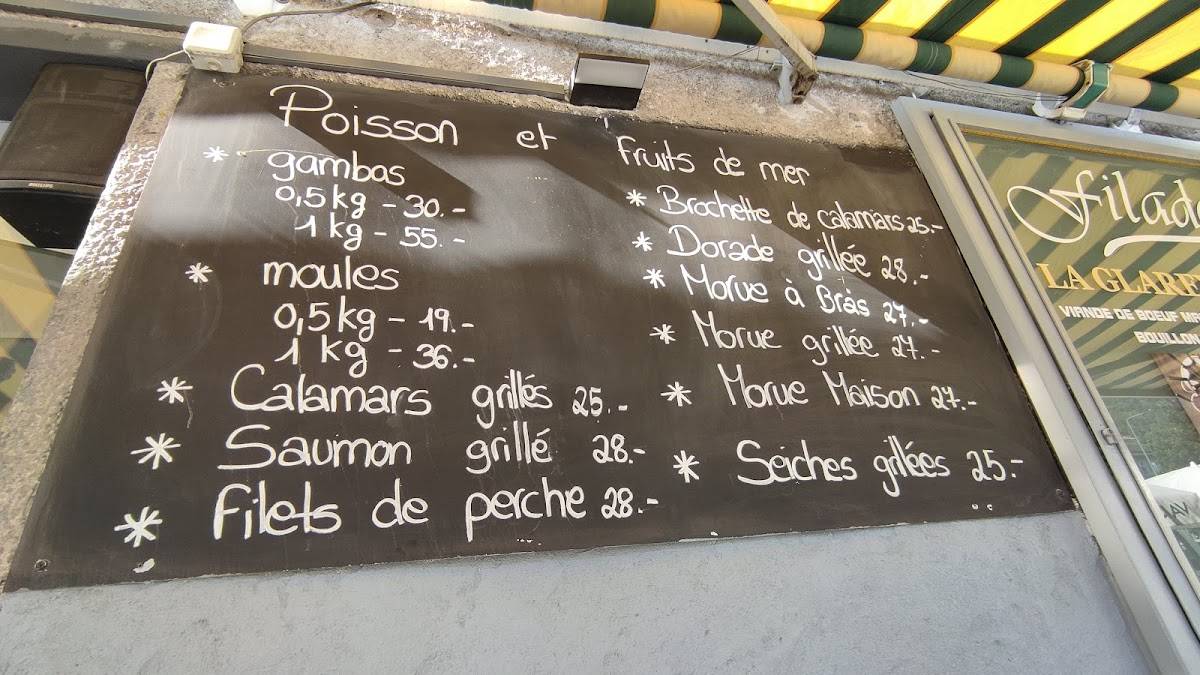 Poisson et fruits de mer
* gambas
0,5 kg - 30.-
1 kg - 55.-
* moules
0,5 kg - 19.-
1 kg - 36.-
* Calamars grillés 25.-
* Saumon grillé 28.-
* Filets de perche 28.-
* Brochette de calamars 25.-
* Dorade grillée 28.-
* Morue à Bràs 27.-
* Morue grillée 27.-
* Morue Maison 27.-
* Seiches grillées 25.-
Filad
LA GLARE
VIANDE DE BOEUF MA
BOUILLON